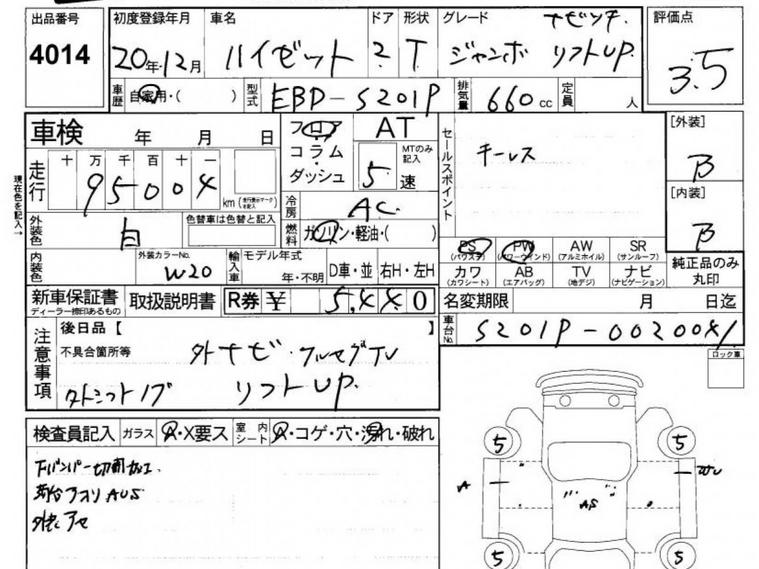 出品番号 初度登録年月 車名 ドア 形状 グレード ナビ レンチ. 評価点
4014 20年12月 ハイゼット 2 T ジャンボ リフトUP. 3.5
車歴 自家用・( ) 型式 EBD-S201P 排気量 660cc 定員 人
車検 年 月 日 フロア AT セールスポイント キーレス [外装]
走行 十 万 千 百 十 一 コラム・ MTのみ記入 B
95004 km (走行表示マークをご記入) ダッシュ 5速 [内装]
現在色を記入→ 冷房 AC B
外装色 白 色替車は色替と記入 燃料 ガソリン・軽油・( ) PS(パワステ) PW(パワーウインド) AW(アルミホイル) SR(サンルーフ)
内装色 外装カラーNo. W20 輸入車 モデル年式 年・不明 D車・並 右H・左H カワ(カワシート) AB(エアバッグ) TV(地デジ) ナビ(ナビゲーション) 純正品のみ丸印
新車保証書 ディーラー捺印あるもの 取扱説明書 R券 ¥ 5,440 名変期限 月 日迄
注意事項 後日品【 】 車台No. S201P-0020041
不具合箇所等 外ナビ・フルセグTV ロック車
外シフトノブ リフトUP.
検査員記入 ガラス A・X要ス 室内シート A・コゲ・穴・汚れ・破れ
下バンパー切断加工.
荷台アオリ AUS
外装 アセ
5 5
A
AS
5 5